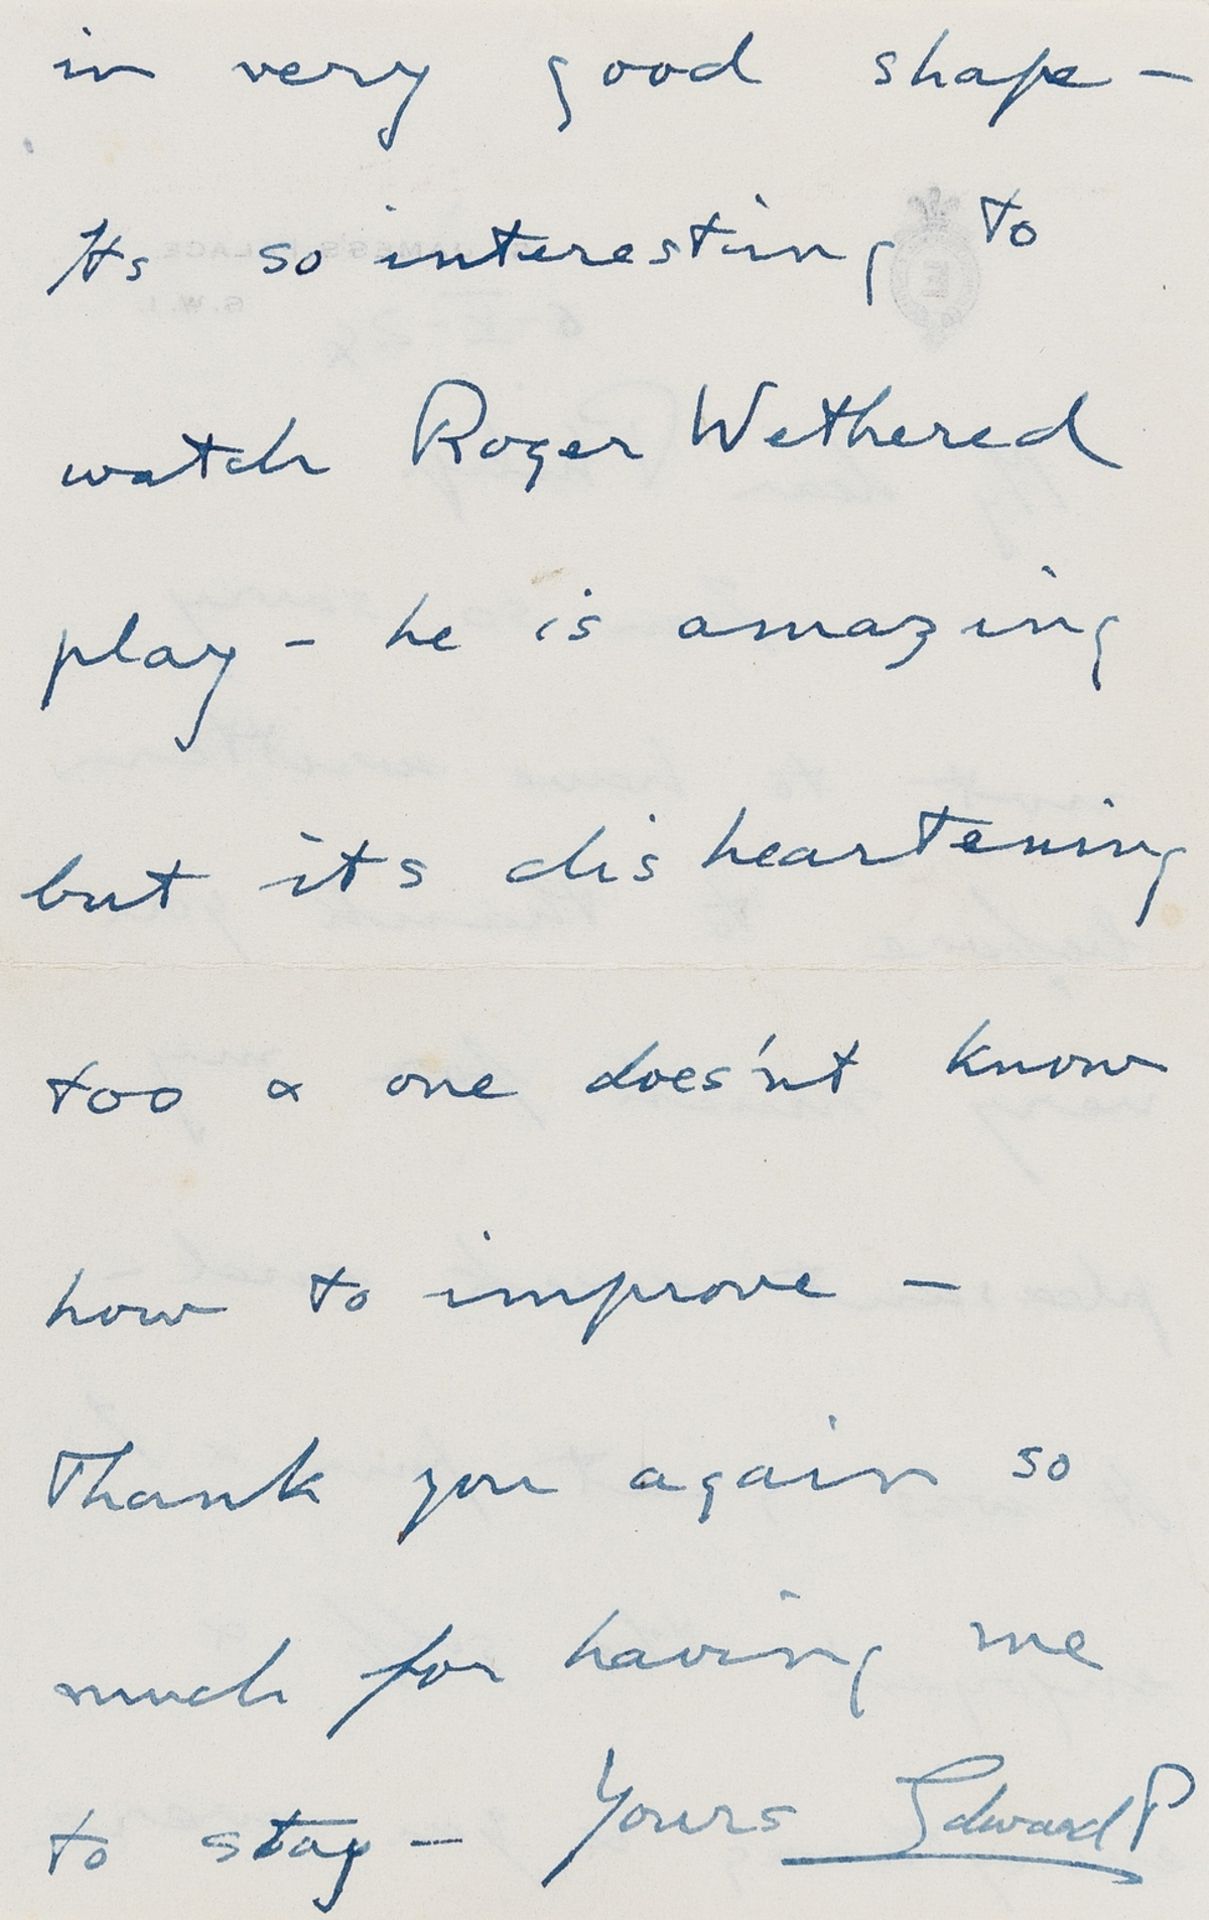 in very good shape –
Its so interesting to
watch Roger Wethered
play – he is amazing
but its disheartening
too & one does'nt know
how to improve –
Thank you again so
much for having me
to stay – Yours Edward P